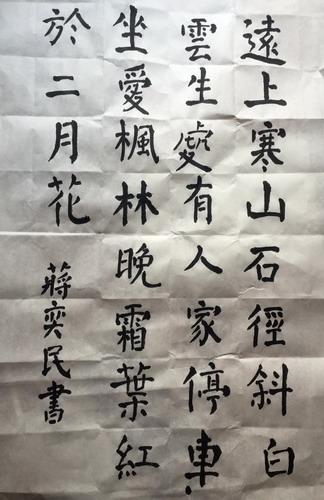 遠上寒山石徑斜白
雲生處有人家停車
坐愛楓林晚霜葉紅
於二月花
蔣奕民書